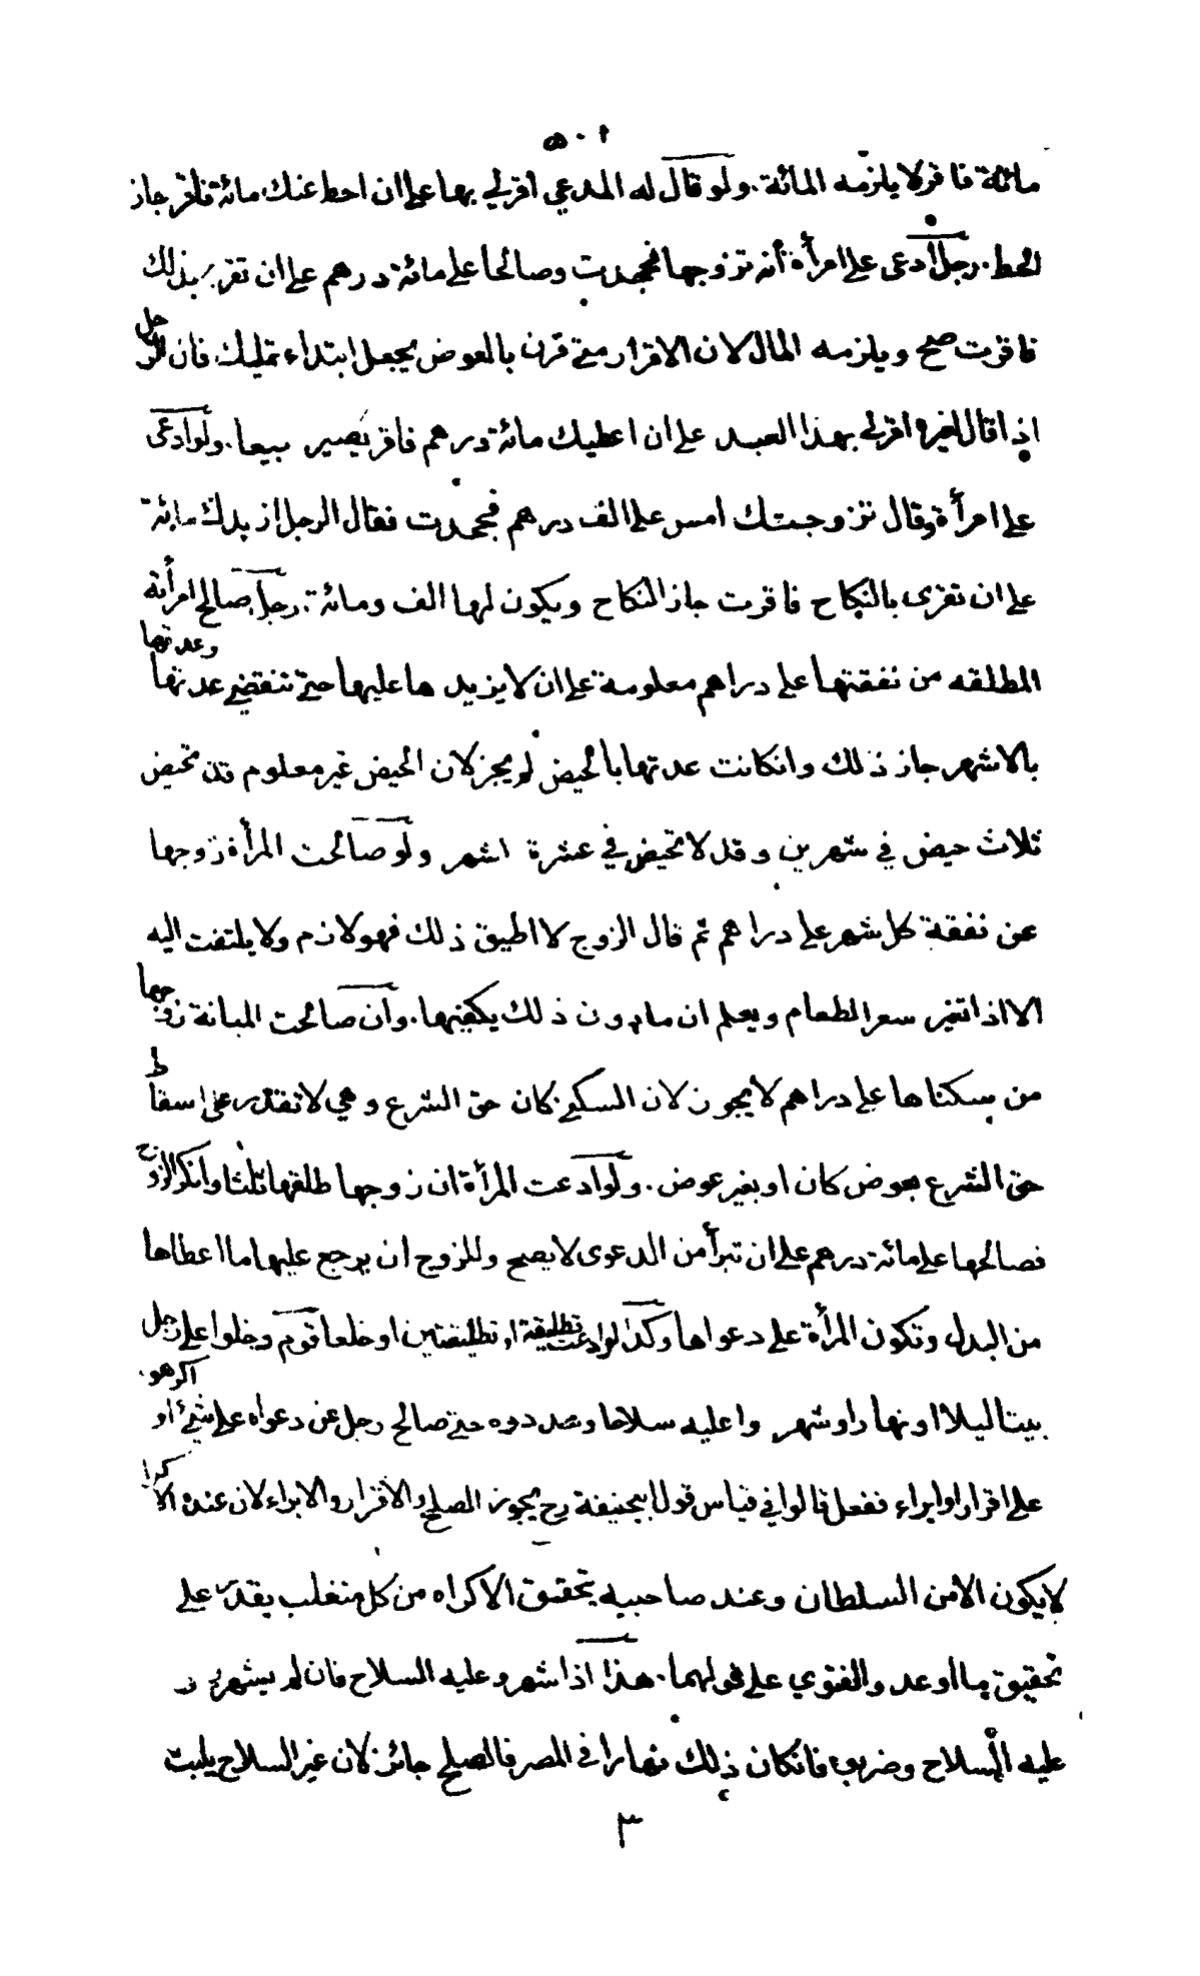 ٥٠١
مائة فاقر لا يلزمه المائة. ولو قال له المدعي اقر لي بها على ان احط عنك مائة فاقر جاز
الحط. رجل ادعى على امرأة أنه تزوجها فجحدت وصالحا على مائة درهم على ان تقر بذلك
فاقرت صح ويلزمه المال لان الاقرار متى قرن بالعوض يجعل ابتداء تمليك فان الرجل
اذا قال لغيره اقر لي بهذا العبد على ان اعطيك مائة درهم فاقر يصير بيعا. ولو ادعى
على امرأة وقال تزوجتك امس على الف درهم فجحدت فقال الرجل ازيدك مائة
على ان تقرى بالنكاح فاقرت جاز النكاح ويكون لها الف ومائة. رجل صالح امرأته
المطلقه من نفقتها على دراهم معلومة على ان لا يزيدها عليها حتى تنقضي عدتها وعدتها
بالاشهر جاز ذلك وانكانت عدتها بالحيض لم يجز لان الحيض غير معلوم قد تحيض
ثلاث حيض في شهرين وقد لا تحيض في عشرة اشهر ولو صالحت المرأة زوجها
عن نفقة كل شهر على دراهم ثم قال الزوج لا اطيق ذلك فهو لازم ولا يلتفت اليه
الا اذا تغير سعر الطعام ويعلم ان ما دون ذلك يكفيها. وان صالحت المبانة زوجها
من سكناها على دراهم لا يجوز لان السكنى كان حق الشرع وهي لا تقدر على اسقاط
حق الشرع بعوض كان او بغير عوض. ولو ادعت المرأة ان زوجها طلقها ثلثا وانكر الزوج
فصالحها على مائة درهم على ان تبرأ من الدعوى لا يصح وللزوج ان يرجع عليها ما اعطاها
من البدل وتكون المرأة على دعواها وكذا لو ادعت تطليقة او تطليقتين او خلعا قوم دخلوا على رجل
بيتا ليلا او نهارا وشهروا عليه سلاحا وهددوه حتى صالح رجل عن دعواه على شيء او اكرهوه
على اقرار او ابراء ففعل قالوا في قياس قول ابيحنيفة رح يجوز الصلح والاقرار والابراء لان عنده الاكراه
لا يكون الا من السلطان وعند صاحبيه يتحقق الاكراه من كل متغلب يقدر على
تحقيق ما اوعد والفتوي على قولهما. هذا اذا شهروا عليه السلاح فان لم يشهروا
عليه السلاح وضربوه فانكان ذلك نهارا في المصر فالصلح جائز لان غير السلاح يلبث
٣